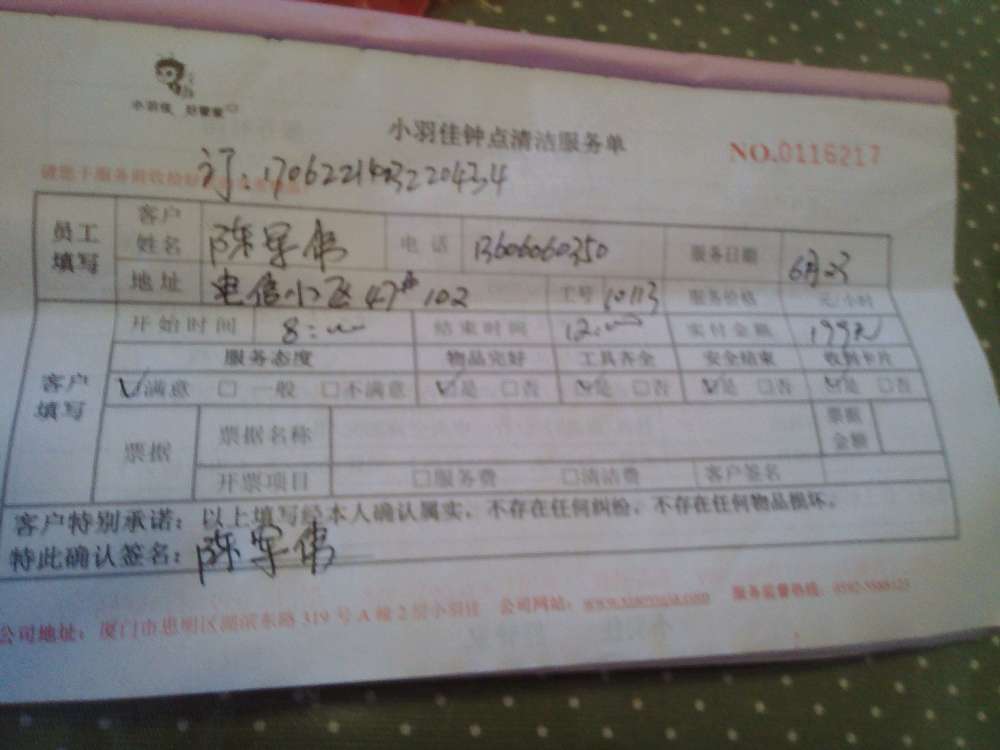 小羽佳 好管家
小羽佳钟点清洁服务单
NO.0116217
订:
员工填写 客户姓名 陈军伟 电话 13606060350 服务日期 6月23
地址 电信小区47# 102 工号 10113 服务价格 元/小时
客户填写 开始时间 8:00 结束时间 12:00 实付金额 199元
服务态度 物品完好 工具齐全 安全结束 收到卡片
☑满意 □一般 □不满意 ☑是 □否 ☑是 □否 ☑是 □否 ☑是 □否
票据 票据名称 票据金额
开票项目 □服务费 □清洁费 客户签名
客户特别承诺:以上填写经本人确认属实,不存在任何纠纷,不存在任何物品损坏。
特此确认签名:陈军伟
公司地址:厦门市思明区湖滨东路319号A幢2层小羽佳 公司网站: 服务监督热线: